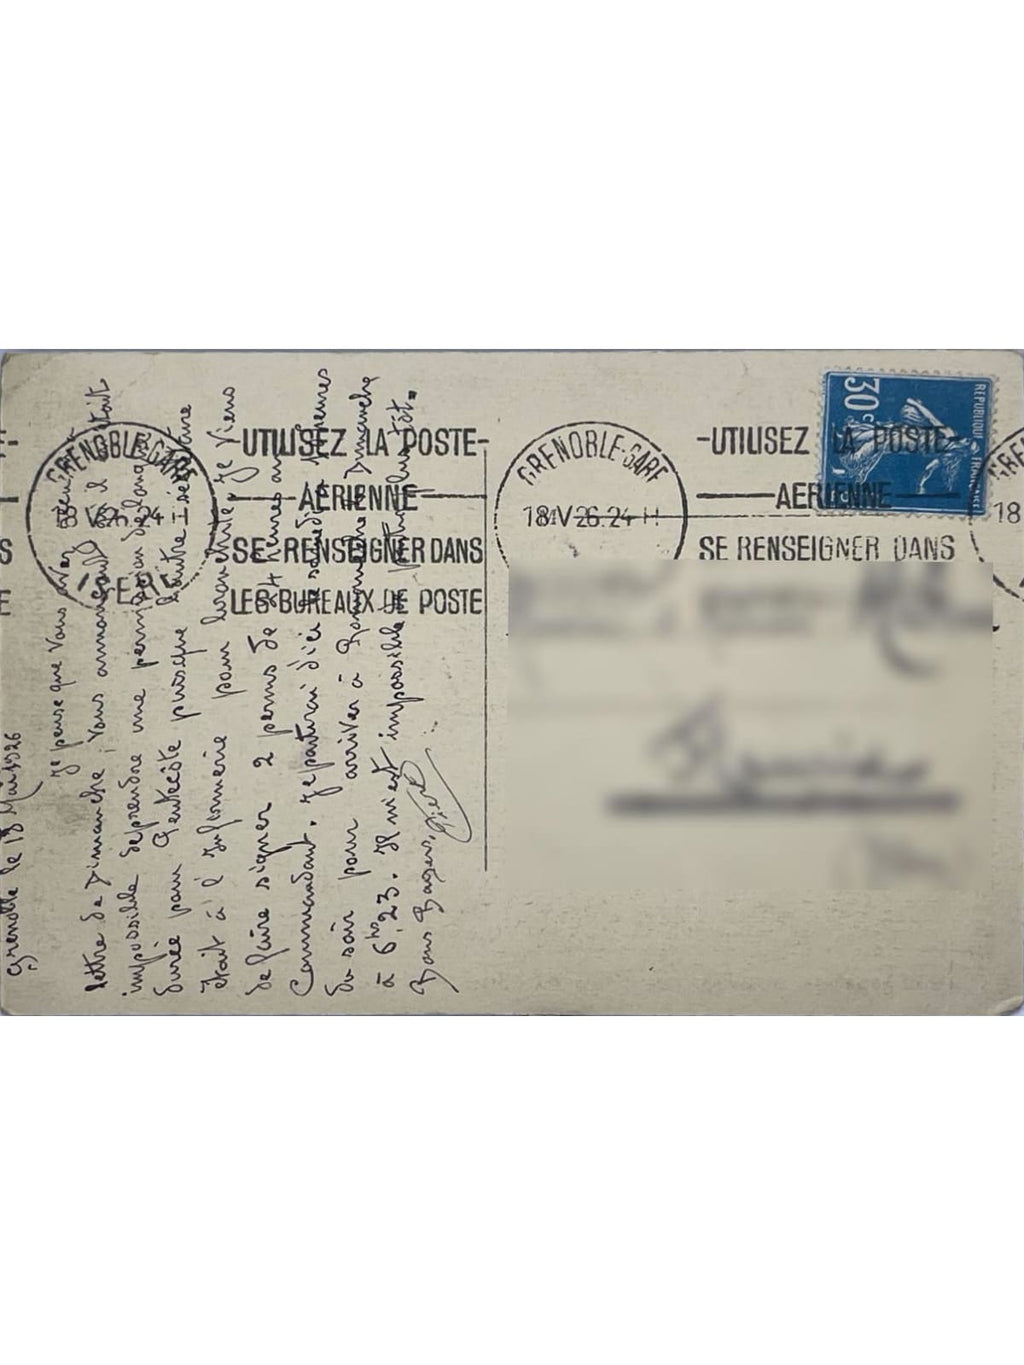 Grenoble le 18 Mai 1926
Je pense que vous avez
lettre de Dimanche, vous annonçant qu'il était
impossible de prendre une permission de longue
durée pour Pentecôte puisque l'autre
était à l'infirmerie pour Je viens
de faire signer 2 perms de 24 heures au
Commandant. Je partirai d'ici le samedi heures
du soir pour arriver à Dimanche
à 6hs 23. Il m'est impossible plus tôt.
Bons Baisers, Pierre
GRENOBLE-GARE
ISERE
-UTILISEZ LA POSTE-
AERIENNE
SE RENSEIGNER DANS
LES BUREAUX DE POSTE
GRENOBLE-GARE
18 V 26. 24 H
-UTILISEZ LA POSTE-
AERIENNE
SE RENSEIGNER DANS
30c
REPUBLIQUE FRANÇAISE
18